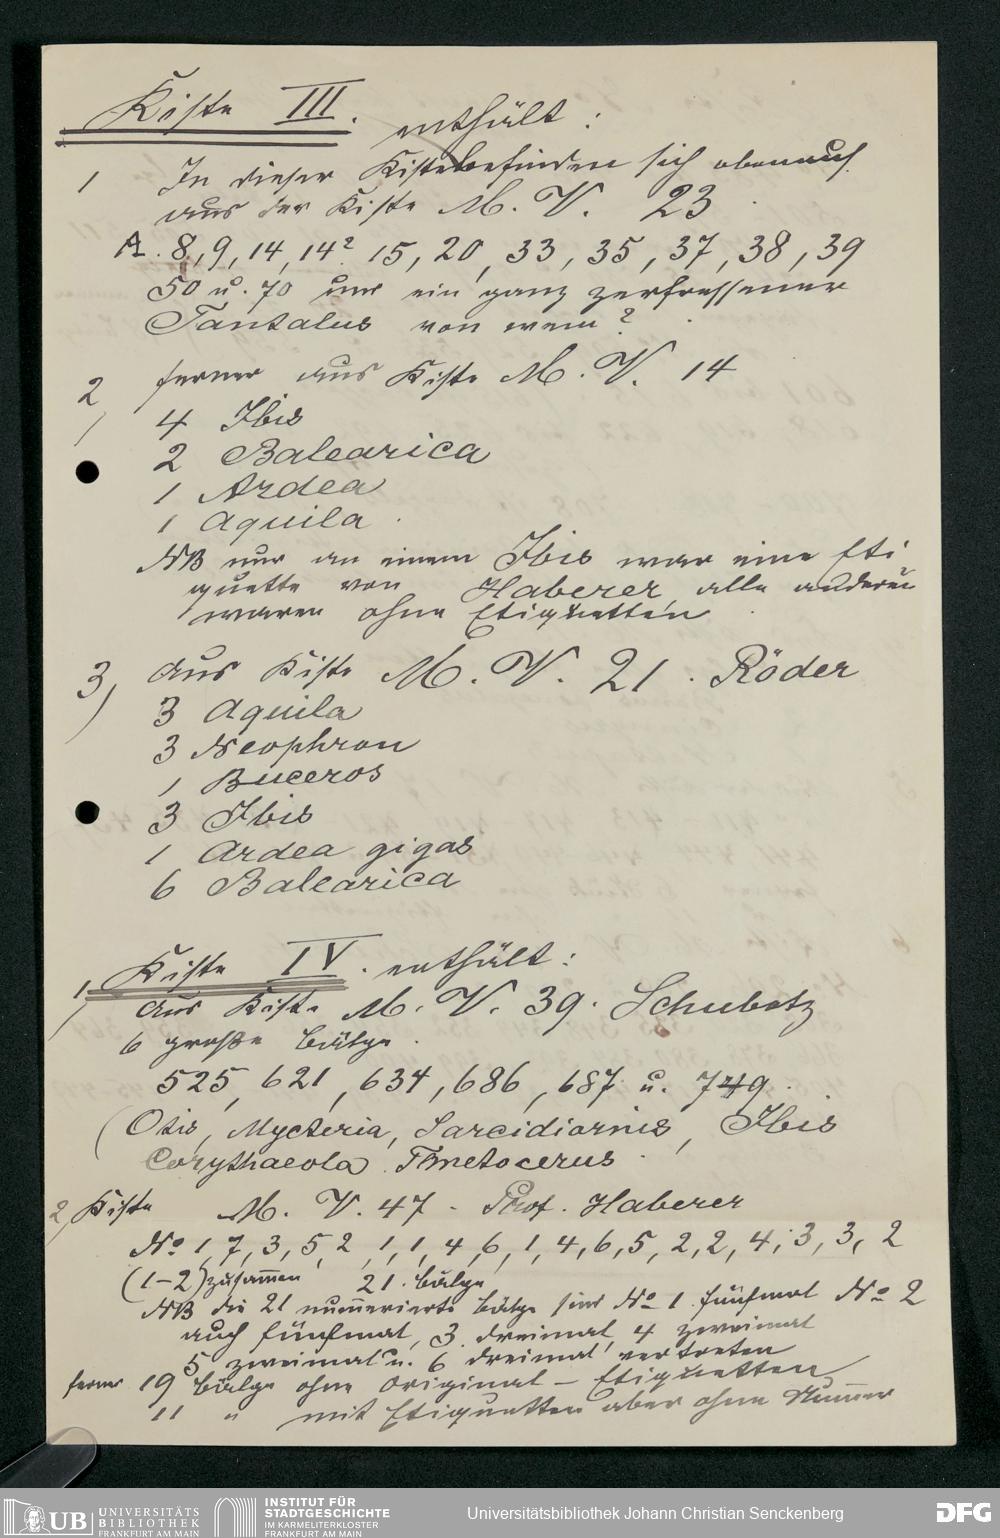 Kiste III. enthält:
1 In dieser Kiste befinden sich obenauf
aus der Kiste M. V. 23
A. 8, 9, 14, 14² 15, 20, 33, 35, 37, 38, 39
50 u. 70 und ein ganz zerfressener
Tantalus von wem?
2 ferner aus Kiste M. V. 14
4 Ibis
2 Balearica
1 Ardea
1 Aquila
NB nur an einem Ibis war eine Eti
quette von Haberer, alle anderen
waren ohne Etiquetten
3) Aus Kiste M. V. 21. Röder
3 Aquila
3 Neophron
1 Buceros
3 Ibis
1 Ardea gigas
6 Balearica
Kiste IV. enthält:
1, Aus Kiste M. V. 39. Schubotz
6 große Bälge.
525, 621, 634, 686, 687 u. 749.
(Otis, Mycteria, Sarcidiornis, Ibis
Corythaeola. Tmetocerus.
2, Kiste M. V. 47 - Prof. Haberer
No 1, 7, 3, 5, 2, 1, 1, 4, 6, 1, 4, 6, 5, 2, 2, 4, 3, 3, 2
(1-2) zusammen 21. Bälge
NB die 21 nummerierte Bälge sind No 1 fünfmal No 2
auch fünfmal, 3 dreimal, 4 zweimal
5 zweimal u. 6 dreimal vertreten
ferner 19 Bälge ohne Original - Etiquetten
11 " mit Etiquetten aber ohne Nummer
UB UNIVERSITÄTS
BIBLIOTHEK
FRANKFURT AM MAIN
INSTITUT FÜR
STADTGESCHICHTE
IM KARMELITERKLOSTER
FRANKFURT AM MAIN
Universitätsbibliothek Johann Christian Senckenberg
DFG